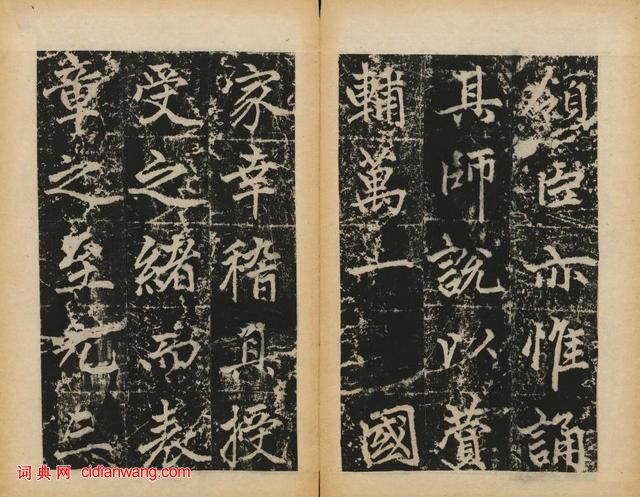 領臣亦惟誦
其師說以賛
輔萬一 國
家幸稽其授
受之緒而表
章之至元三
词典网 cidianwang.com